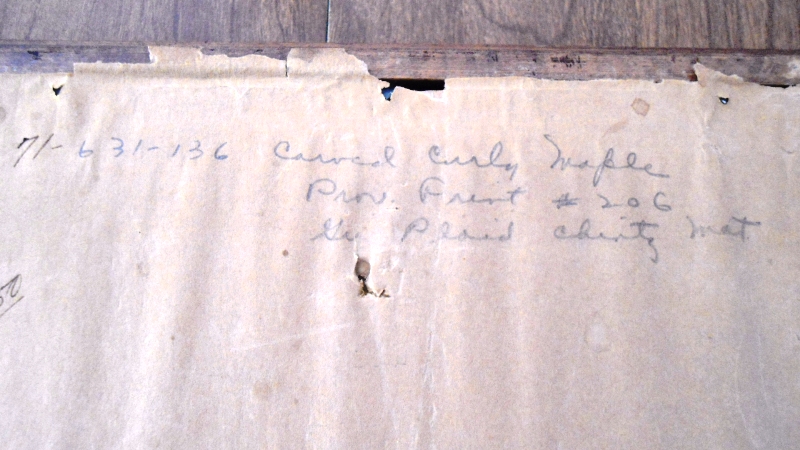 71-631-136 Carved Curly Maple
Prov. Print # 206
Plaid chintz Mat
50